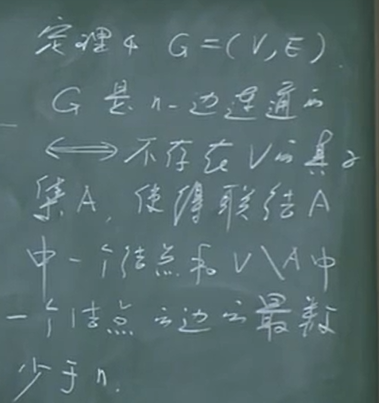 定理4 G=(V,E).
G是n-边连通的
⟺不存在V的真子
集A,使得联结A
中一个结点和V\A中
一个结点的边的最数
少于n.